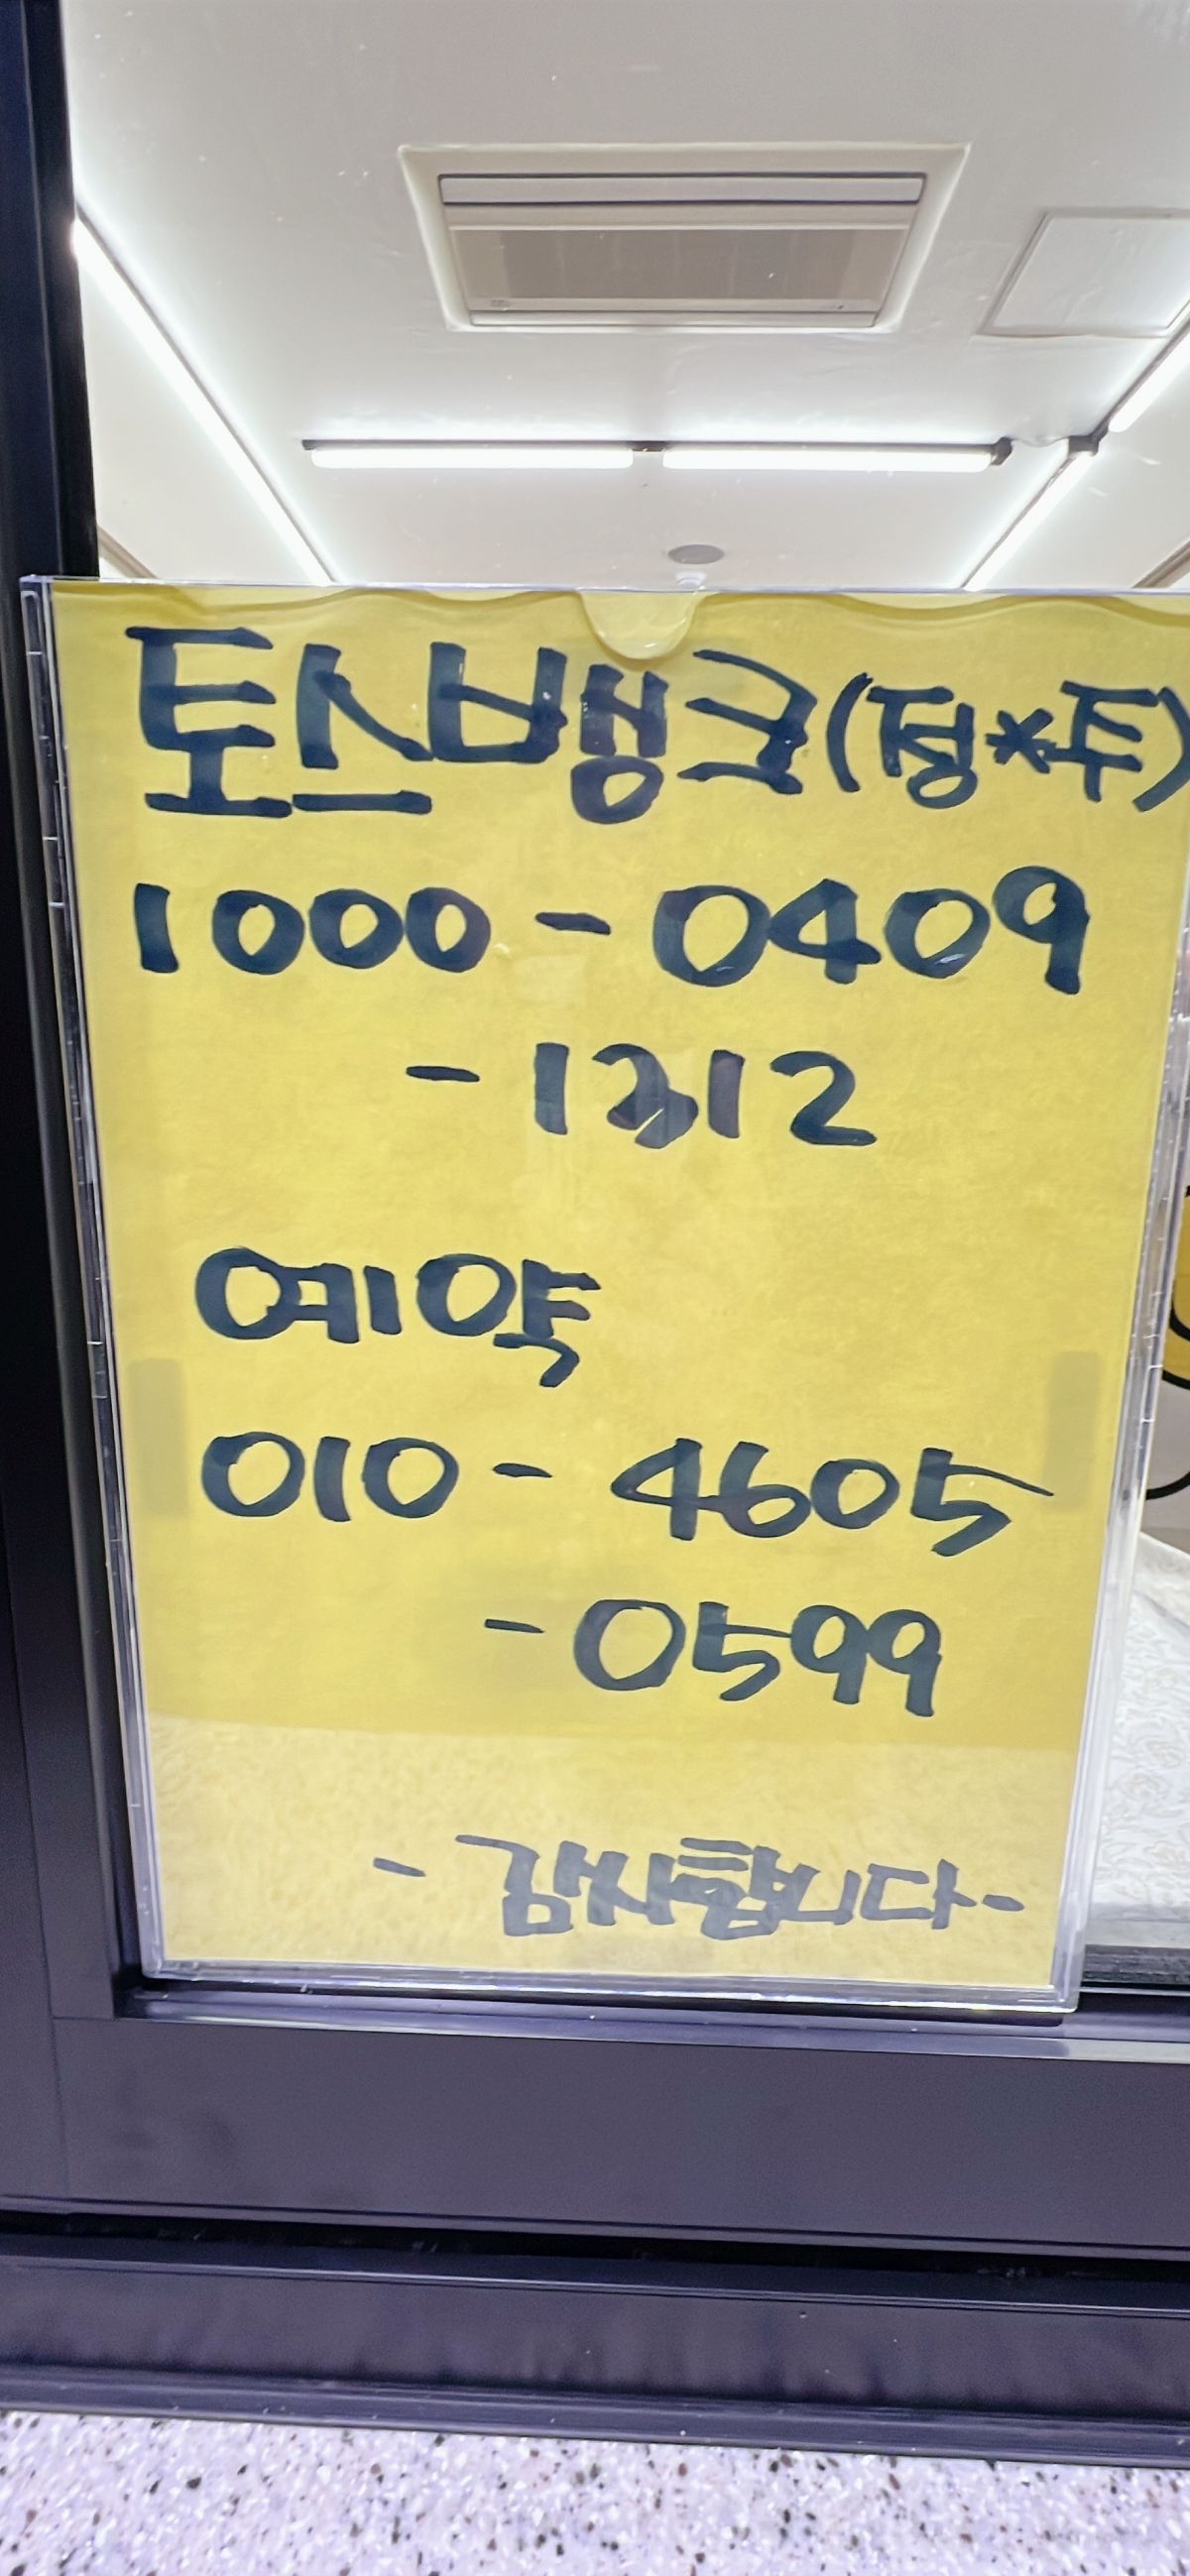 토스뱅크(정*두)
1000-0409
-1312
예약
010-4605
-0599
-감사합니다-